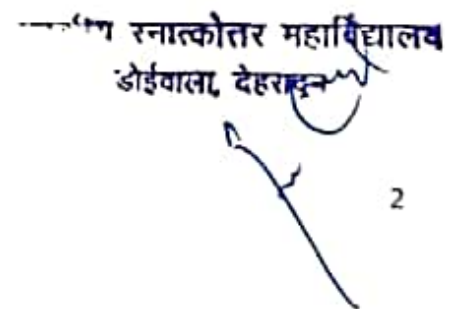 रनात्कोत्तर महाविद्यालय
डोईवाला, देहरादून
2